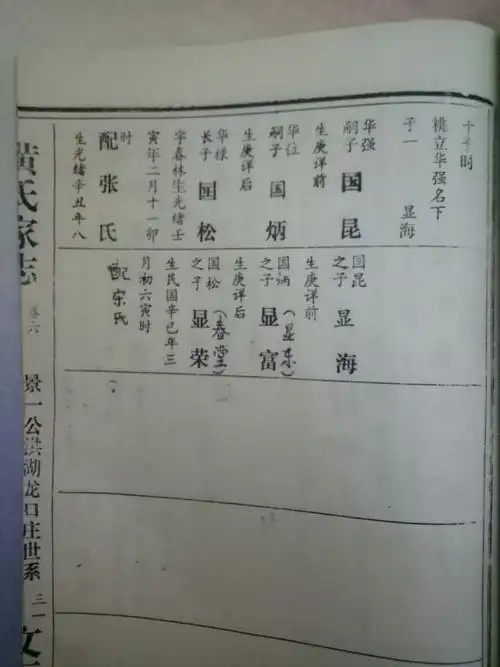 十年时
桃立华强名下
子一 显海
华强嗣子 国昆
生庚详前
华位嗣子 国炳
生庚详后
华禄长子 国松
字春林生光绪壬
寅年二月十一卯
时
配张氏
生光绪辛丑年八
国昆之子 显海
生庚详前
国炳之子 显富(显东)
生庚详后
国松之子 显荣(春堂)
生民国辛巳年三
月初六寅时
配宗氏
黄氏家志
卷六
景一公洪湖龙口庄世系
三一